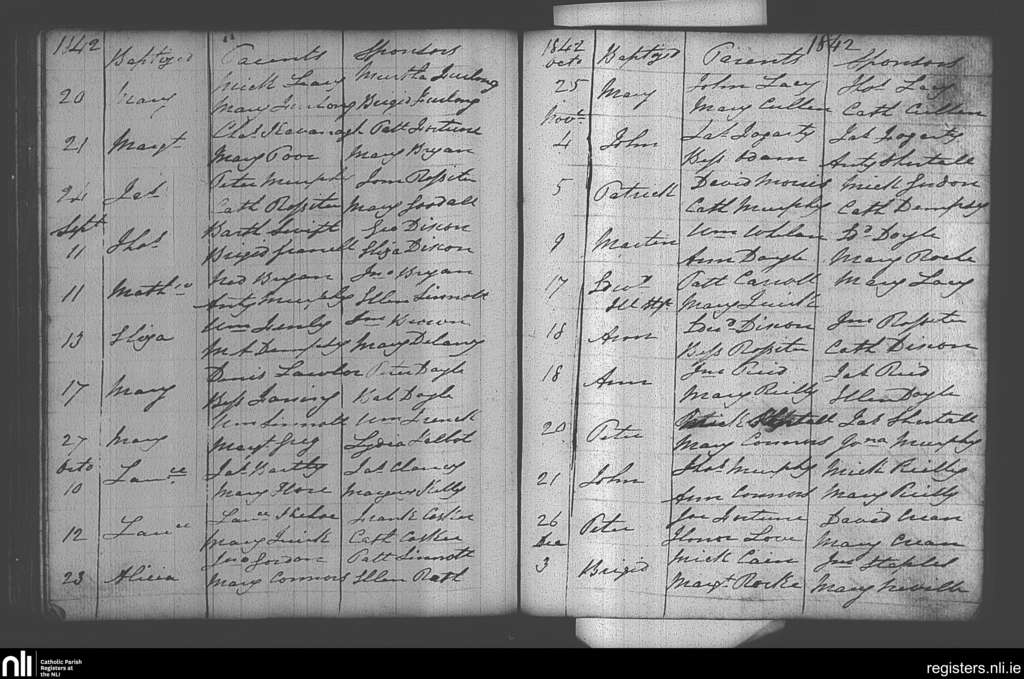 1842 Baptized Parents Sponsors
20 Mary Mick Leary Murtha Furlong
Mary Furlong Brigid Furlong
21 Margt Chas Kavanagh Patt Fortune
Mary Poor Mary Bryan
24 Jas Peter Murphy John Rossiter
Cath Rossiter Mary Goodall
Sept Barth Swift Geo Dixon
11 Thos Brigid Eliza Dixon
11 Mathew Ned Bryan Jno Bryan
Anty Murphy Ellen Sinnott
13 Eliza Wm Jno Brown
Mt Dempsey Mary Delany
17 Mary Denis Lawlor Peter Doyle
Bess Kat Doyle
27 Mary Wm Sinnott Wm French
Margt Greg Lydia Talbot
Octo Jas Jas Clancy
10 Lawce Mary Hore Kelly
12 Lawce Lawce Kehoe Frank Coskin
Mary Quirk Cath Coskin
23 Alicia Jno Gordon Patt Sinnott
Mary Connors Ellen Rath
1842 1842
Octo Baptized Parents Sponsors
25 Mary John Lacy Thos Lacy
Mary Cullen Cath Cullen
Novr
4 John Jas Fogarty Jas Fogarty
Bess Adam Anty Shortall
5 Patrick David Morris Mick
Cath Murphy Cath Dempsey
9 Martin Wm Whelan Ed Doyle
Ann Doyle Mary Roche
17 Edwd Patt Carroll Mary Lacy
Mary Quirk
18 Ann Edwd Dixon Jno Rossiter
Bess Rossiter Cath Dixon
18 Ann Jno Reid Jas Reid
Mary Reilly Ellen Doyle
20 Peter Mick Jas Shortall
Mary Connors Murphy
21 John Thos Murphy Mick Reilly
Ann Connors Mary Reilly
26 Peter Jno Fortune David Crean
Dec Honor Love Mary Crean
3 Brigid Mick Cain Jno Staples
Margt Rocke Mary Neville
nli
Catholic Parish
Registers at
the NLI
registers.nli.ie